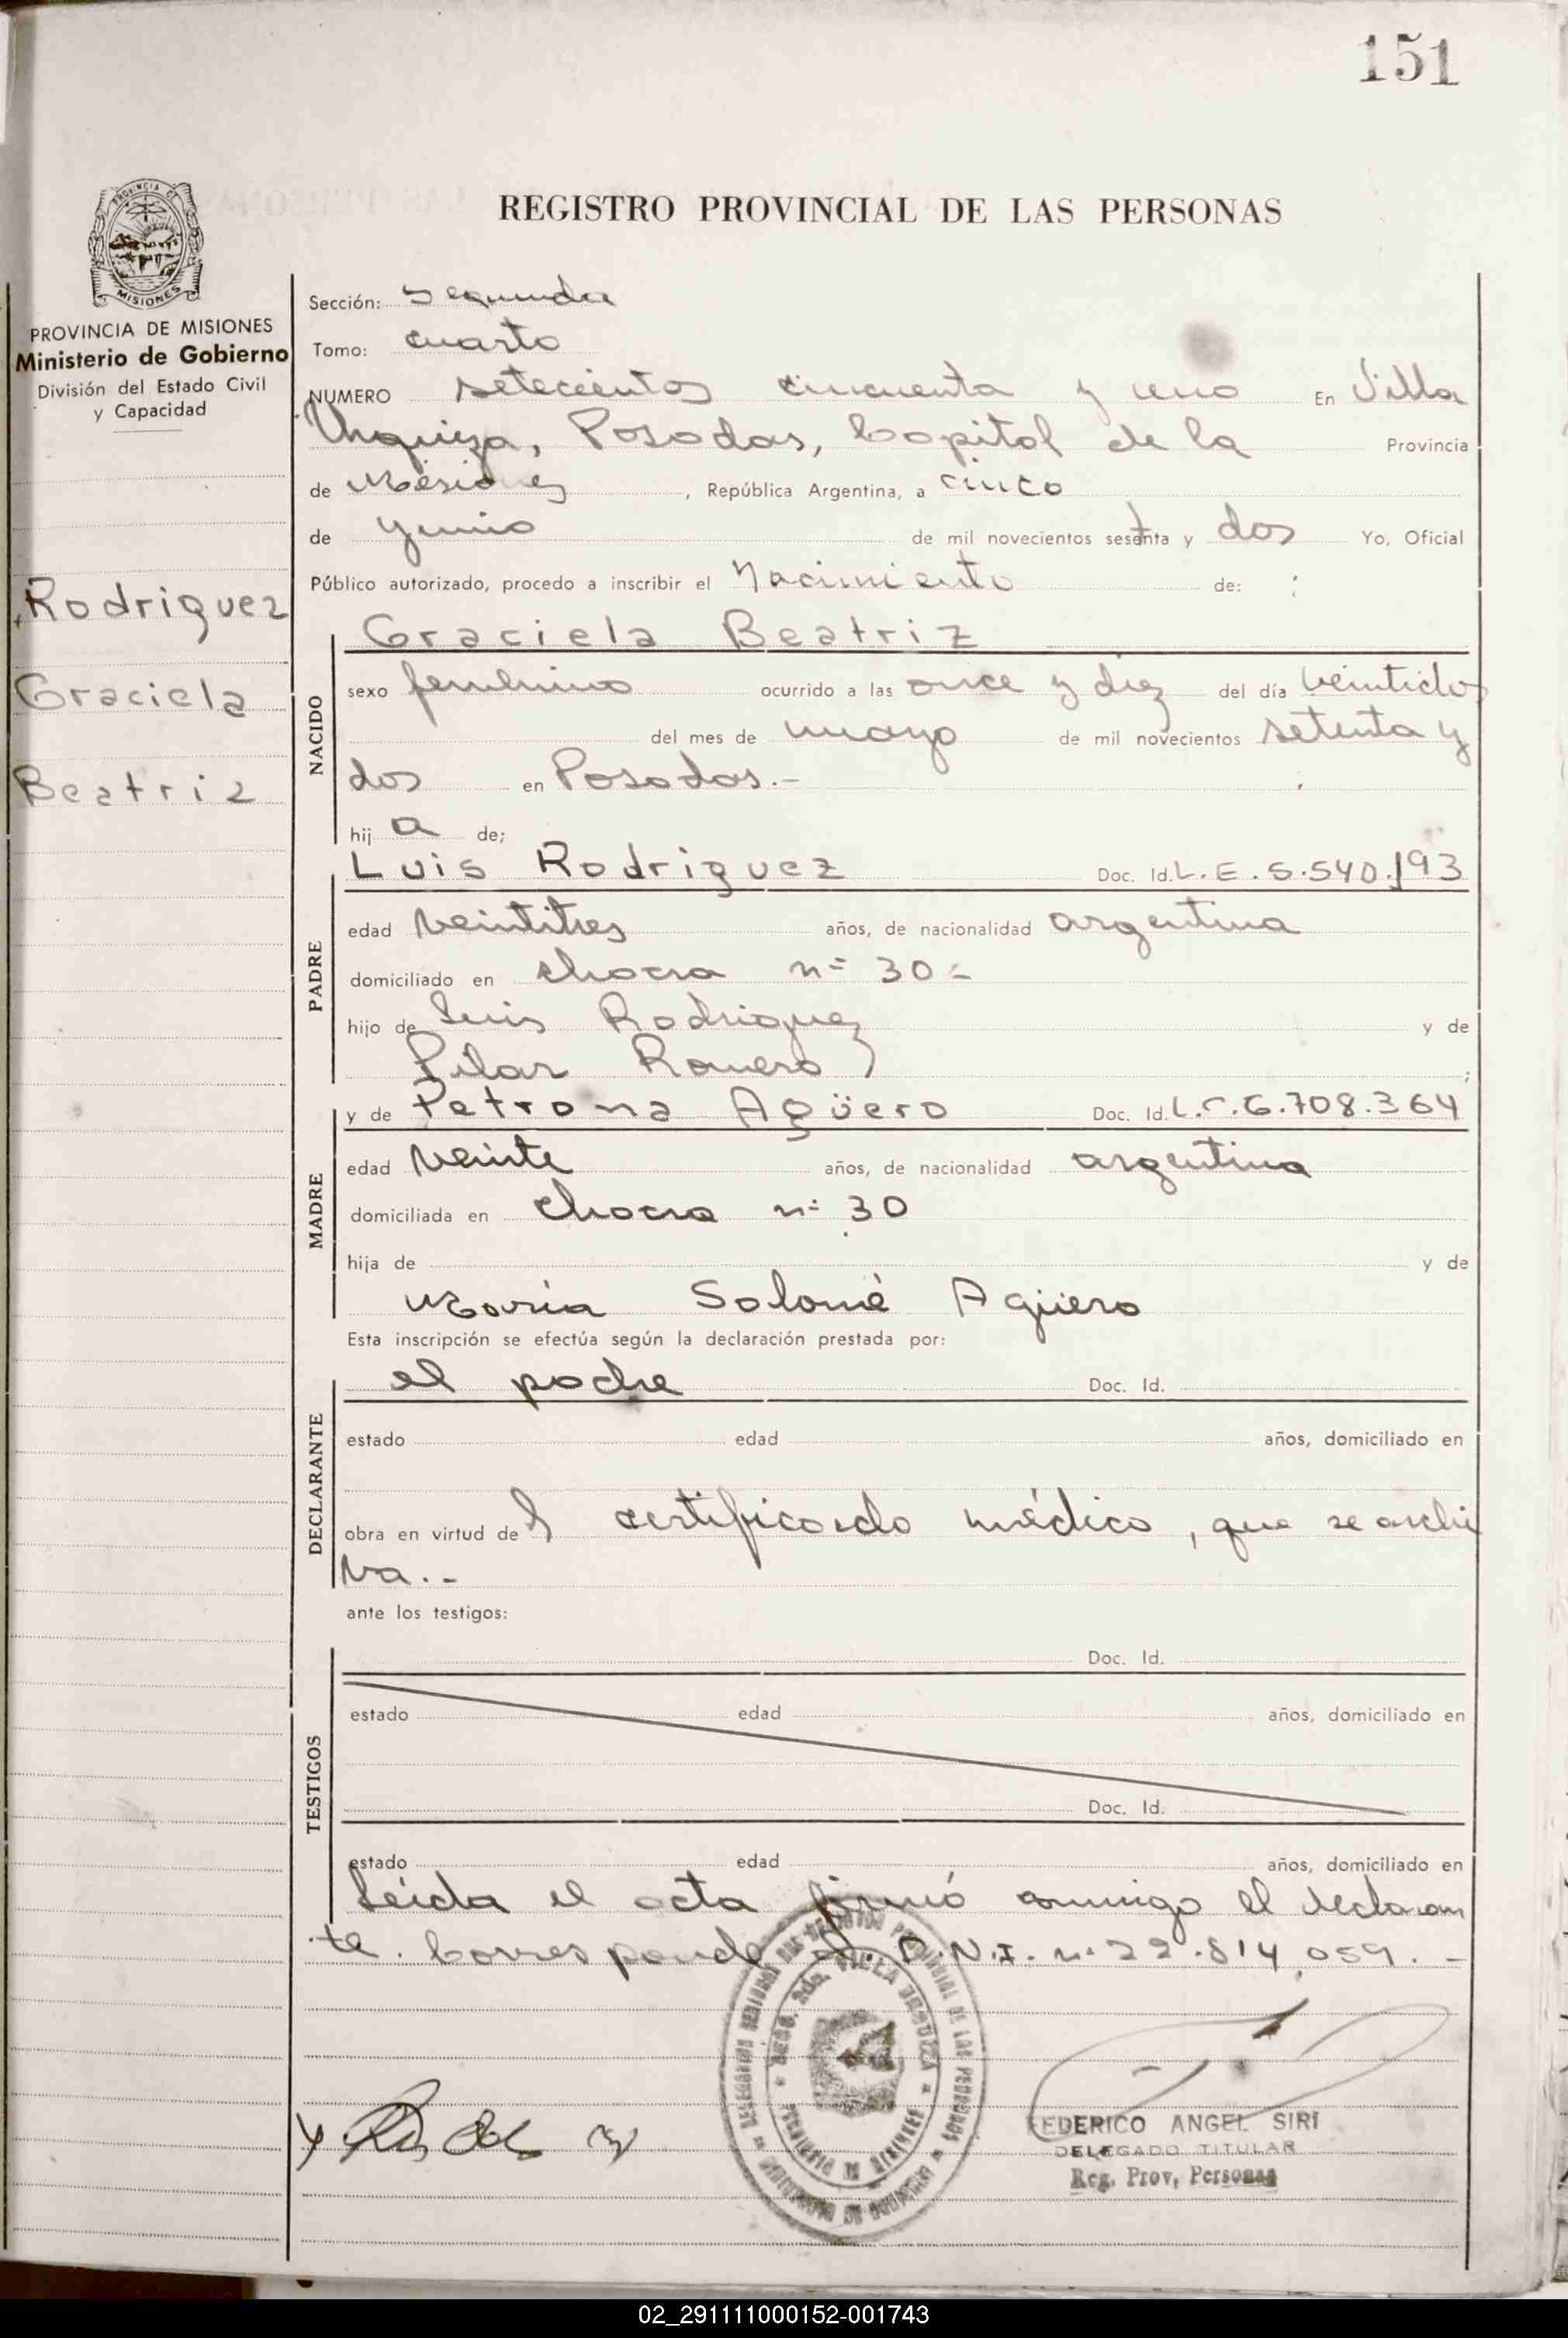 151
REGISTRO PROVINCIAL DE LAS PERSONAS
PROVINCIA DE MISIONES
Ministerio de Gobierno
División del Estado Civil
y Capacidad
Rodriguez
Graciela
Beatriz
Sección: Segunda
Tomo: cuarto
NUMERO setecientos cincuenta y uno En Villa
Urquiza, Posadas, Capital de la Provincia
de Misiones, República Argentina, a cinco
de Junio de mil novecientos setenta y dos Yo, Oficial
Público autorizado, procedo a inscribir el Nacimiento de:
NACIDO
Graciela Beatriz
sexo femenino ocurrido a las once y diez del día veintidos
del mes de mayo de mil novecientos setenta y
dos en Posadas.-
hij a de;
PADRE
Luis Rodriguez Doc. Id. L.E. 5.540.193
edad veintitres años, de nacionalidad argentina
domiciliado en chacra nº 30-
hijo de Luis Rodriguez y de
Pilar Romero ;
MADRE
y de Petrona Agüero Doc. Id. L.C. 6.708.364
edad veinte años, de nacionalidad argentina
domiciliada en chacra nº 30
hija de y de
María Salomé Agüero
Esta inscripción se efectúa según la declaración prestada por:
DECLARANTE
el padre Doc. Id.
estado edad años, domiciliado en
obra en virtud de l certificado médico, que se archi
va.-
ante los testigos:
TESTIGOS
Doc. Id.
estado edad años, domiciliado en
Doc. Id.
estado edad años, domiciliado en
Leída el acta firmó conmigo el declaran
te. Corresponde D.N.I. nº 22.814.059.-
FEDERICO ANGEL SIRI
DELEGADO TITULAR
Reg. Prov, Personas
02_291111000152-001743